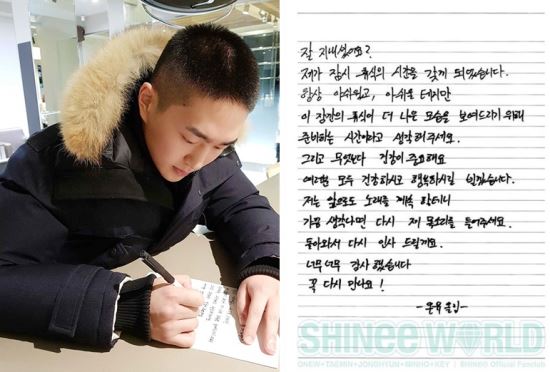 잘 지내셨어요?
제가 잠시 휴식의 시간을 갖게 되었습니다.
항상 아쉬웠고, 아쉬울 테지만
이 잠깐의 휴식이 더 나은 모습을 보여드리기 위해
준비하는 시간이라고 생각해주세요.
그리고 무엇보다 건강이 중요해요
여러분 모두 건강하시고 행복하시길 빌겠습니다.
저는 앞으로도 노래를 계속 할테니
가끔 생각나면 다시 제 목소리를 들어주세요.
돌아와서 다시 인사 드릴게요.
너무너무 감사했습니다
꼭 다시 만나요!
-온유 올림-
SHINee WORLD
ONEW•TAEMIN•JONGHYUN•MINHO•KEY | SHINee Official Fanclub